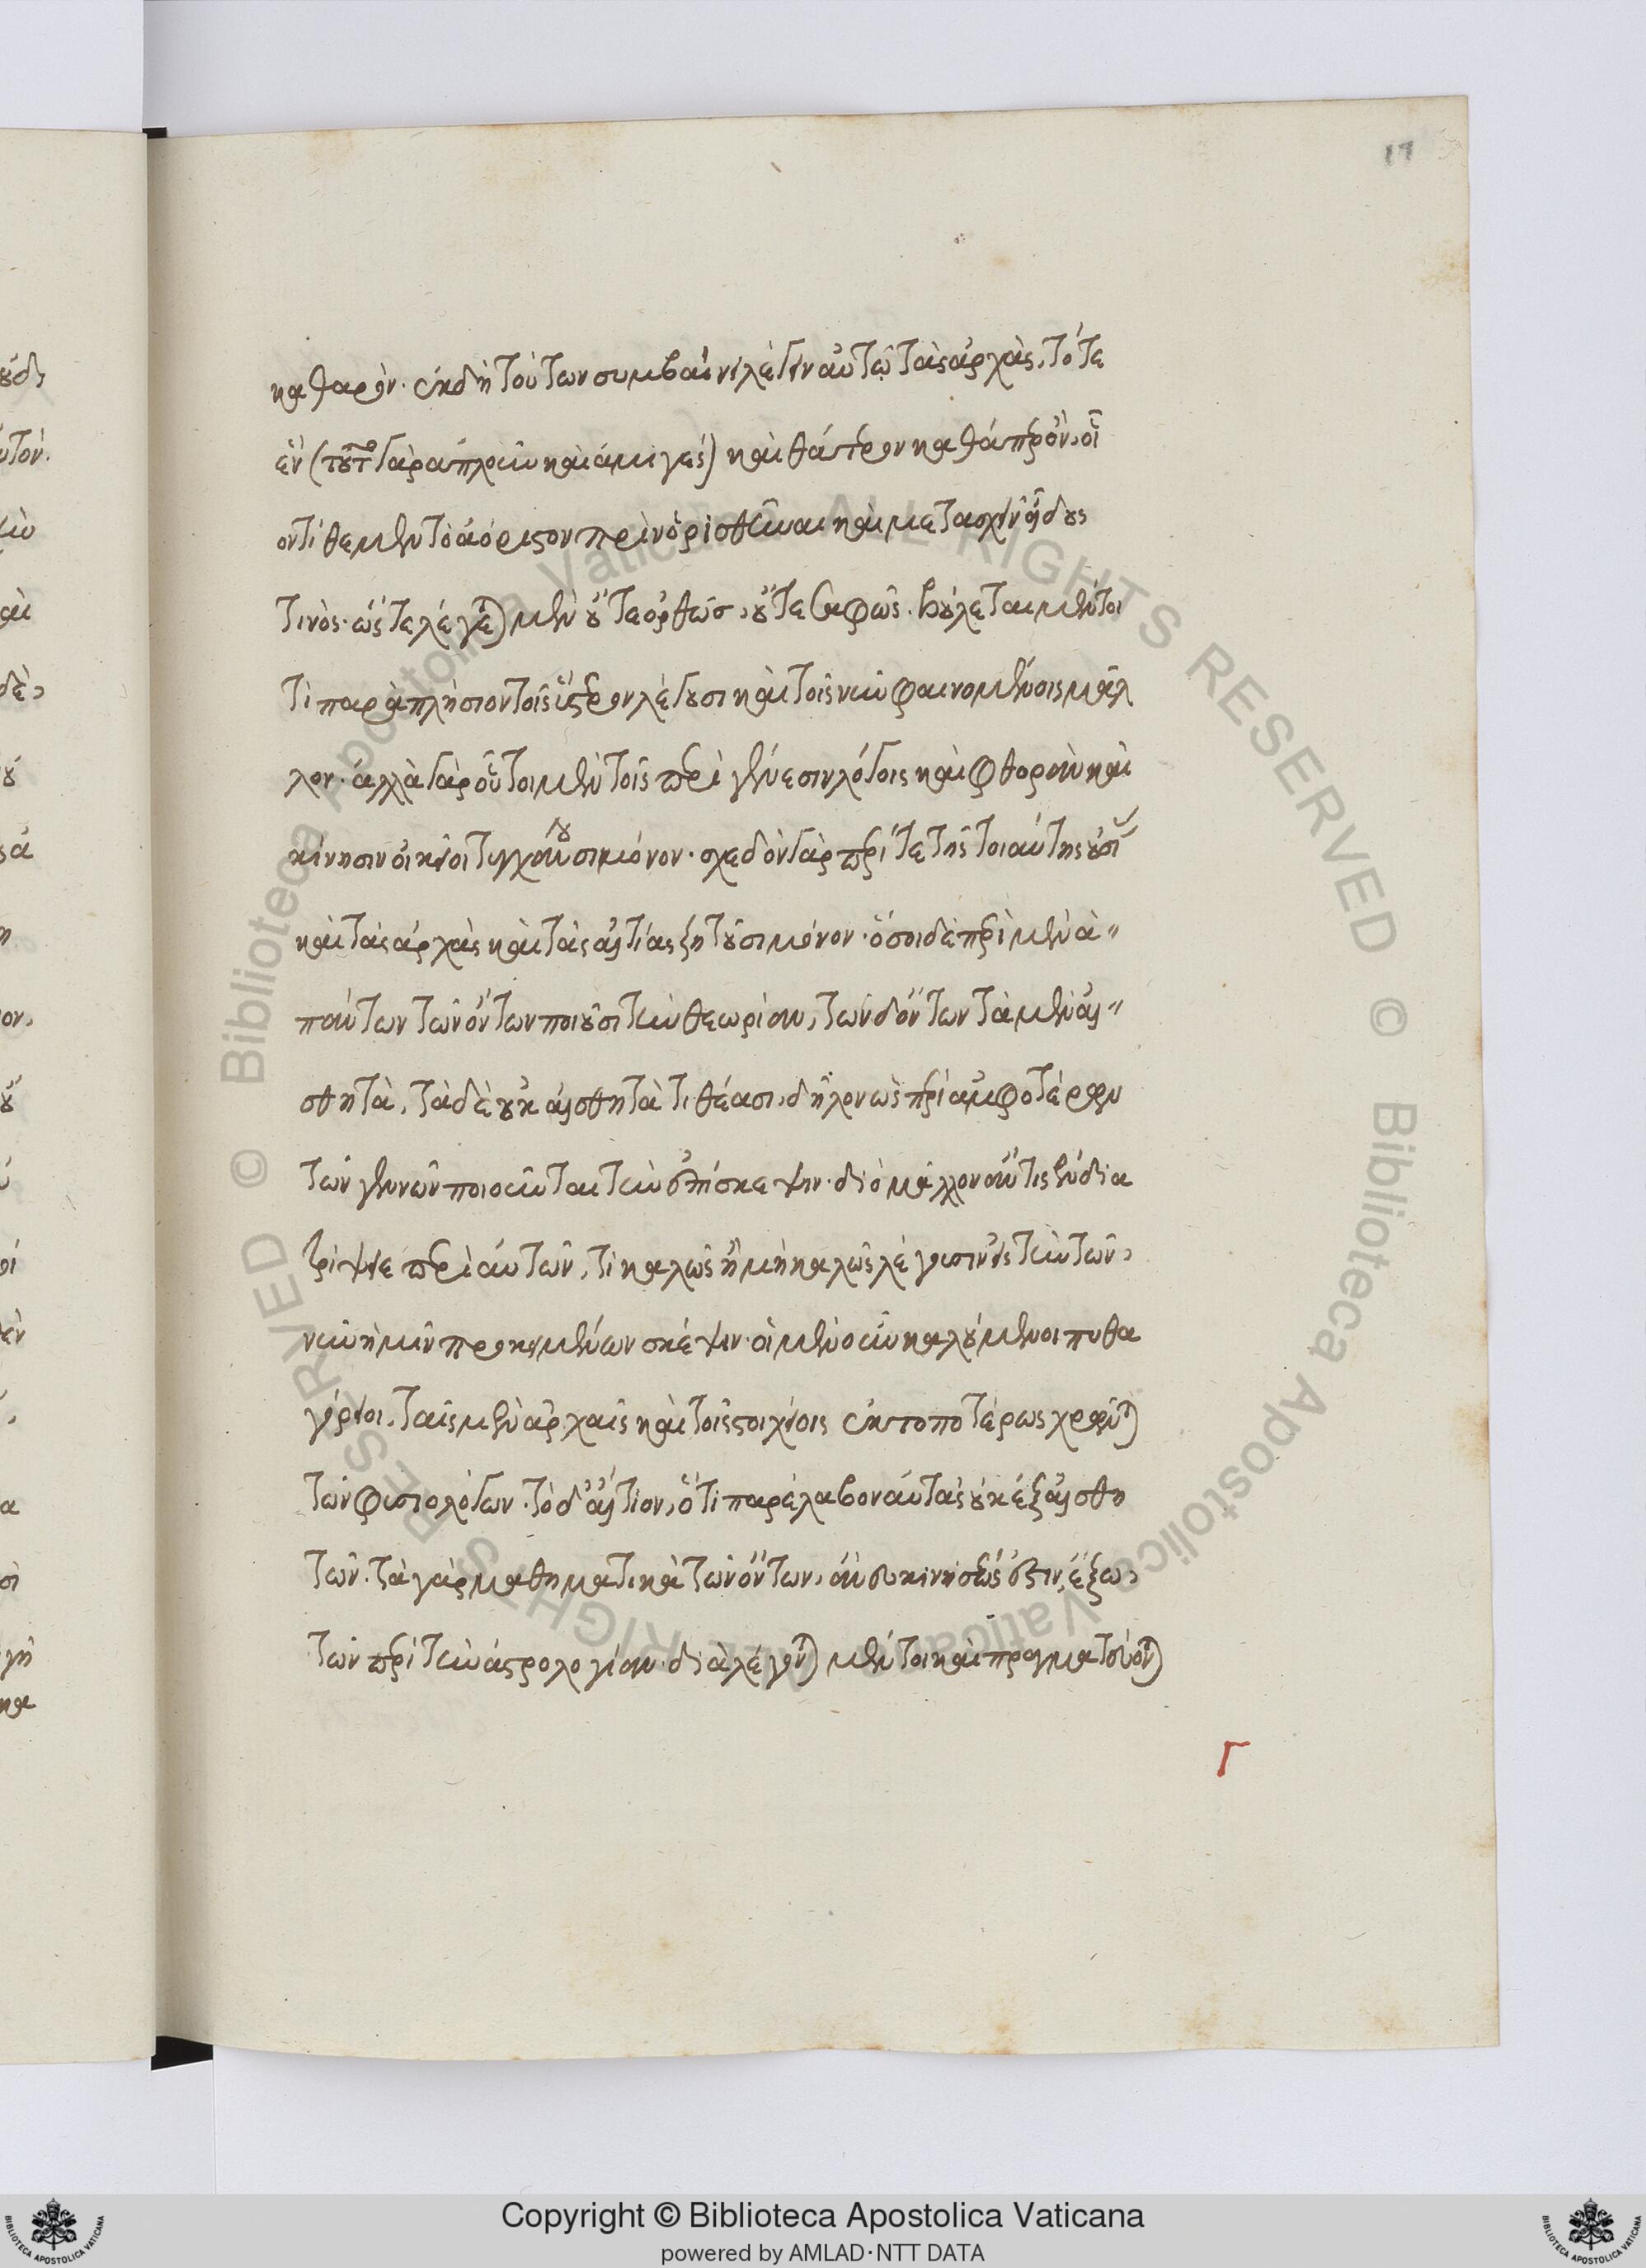 17
καθαρόν. ἐκ δὴ τούτων συμβαίνει λέγειν αὐτῷ τὰς ἀρχὰς, τό τε
ἓν (τοῦτο γὰρ ἁπλοῦν καὶ ἀμιγές) καὶ θάτερον καθάπερ ὂν, οἷ
ον τίθεμεν τὸ ἀόριστον πρὶν ὁρισθῆναι καὶ μετασχεῖν εἴδους
τινός. ὥστε λέγεται μὲν οὔτε ὀρθῶς, οὔτε σαφῶς. βούλεται μέντοι
τὶ παραπλήσιον τοῖς ὕστερον λέγουσι καὶ τοῖς νῦν φαινομένοις μᾶλ
λον. ἀλλὰ γὰρ οὗτοι μὲν τοῖς περὶ γένεσιν λόγοις καὶ φθορὰν καὶ
κίνησιν οἰκεῖοι τυγχάνουσι μόνον. σχεδὸν γὰρ περί τε τῆς τοιαύτης οὐσί
καὶ τὰς ἀρχὰς καὶ τὰς αἰτίας ζητοῦσι μόνον. ὅσοι δὲ περὶ μὲν ἁ
πάντων τῶν ὄντων ποιοῦσι τὴν θεωρίαν, τῶν δ' ὄντων τὰ μὲν αἰ
σθητὰ, τὰ δὲ οὐκ αἰσθητὰ τιθέασι, δῆλον ὡς περὶ ἀμφοτέρων
τῶν γενῶν ποιοῦνται τὴν ἐπίσκεψιν. διὸ μᾶλλον ἄν τις ἐνδια
τρίψειε περὶ αὐτῶν, τί καλῶς ἢ μὴ καλῶς λέγουσιν εἰς τὴν τῶν
νῦν ἡμῖν προκειμένων σκέψιν. οἱ μὲν οὖν καλούμενοι πυθα
γόρειοι, ταῖς μὲν ἀρχαῖς καὶ τοῖς στοιχείοις ἐκτοποτέρως χρῶνται
τῶν φυσιολόγων. τὸ δ' αἴτιον, ὅτι παρέλαβον αὐτὰς οὐκ ἐξ αἰσθη
τῶν. τὰ γὰρ μαθηματικὰ τῶν ὄντων, ἄνευ κινήσεώς ἐστιν, ἔξω
τῶν περὶ τὴν ἀστρολογίαν. διαλέγονται μέντοι καὶ πραγματεύονται
Γ
Copyright © Biblioteca Apostolica Vaticana
powered by AMLAD·NTT DATA